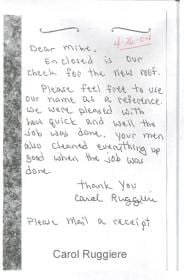 4-26-04
Dear Mike,
Enclosed is our
check for the new roof.
Please feel free to use
our name as a reference.
We were pleased with
how quick and well the
job was done. Your men
also cleaned everything up
good when the job was
done.
Thank You
Carol Ruggieri
Please Mail a receipt
Carol Ruggiere